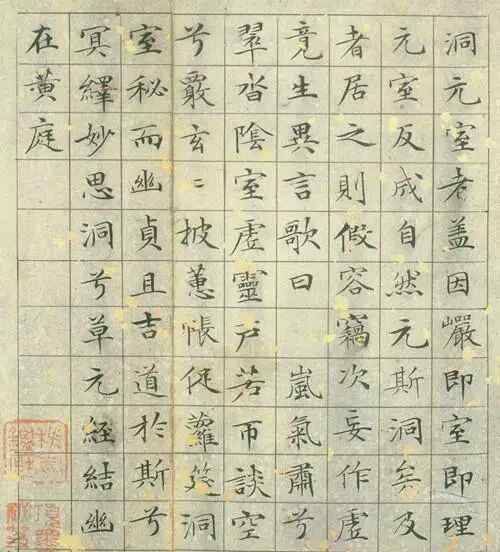 洞元室者盖因巖即室即理
元室反成自然元斯洞矣及
者居之則假容竊次妄作虛
竞生異言歌曰 嵐氣肅兮
翠沓陰室虛靈戶若帀談空
兮覈玄〻披蕙帳促蘿筵洞
室秘而幽貞且吉道於斯兮
冥繹妙思洞兮草元經結幽
在黃庭